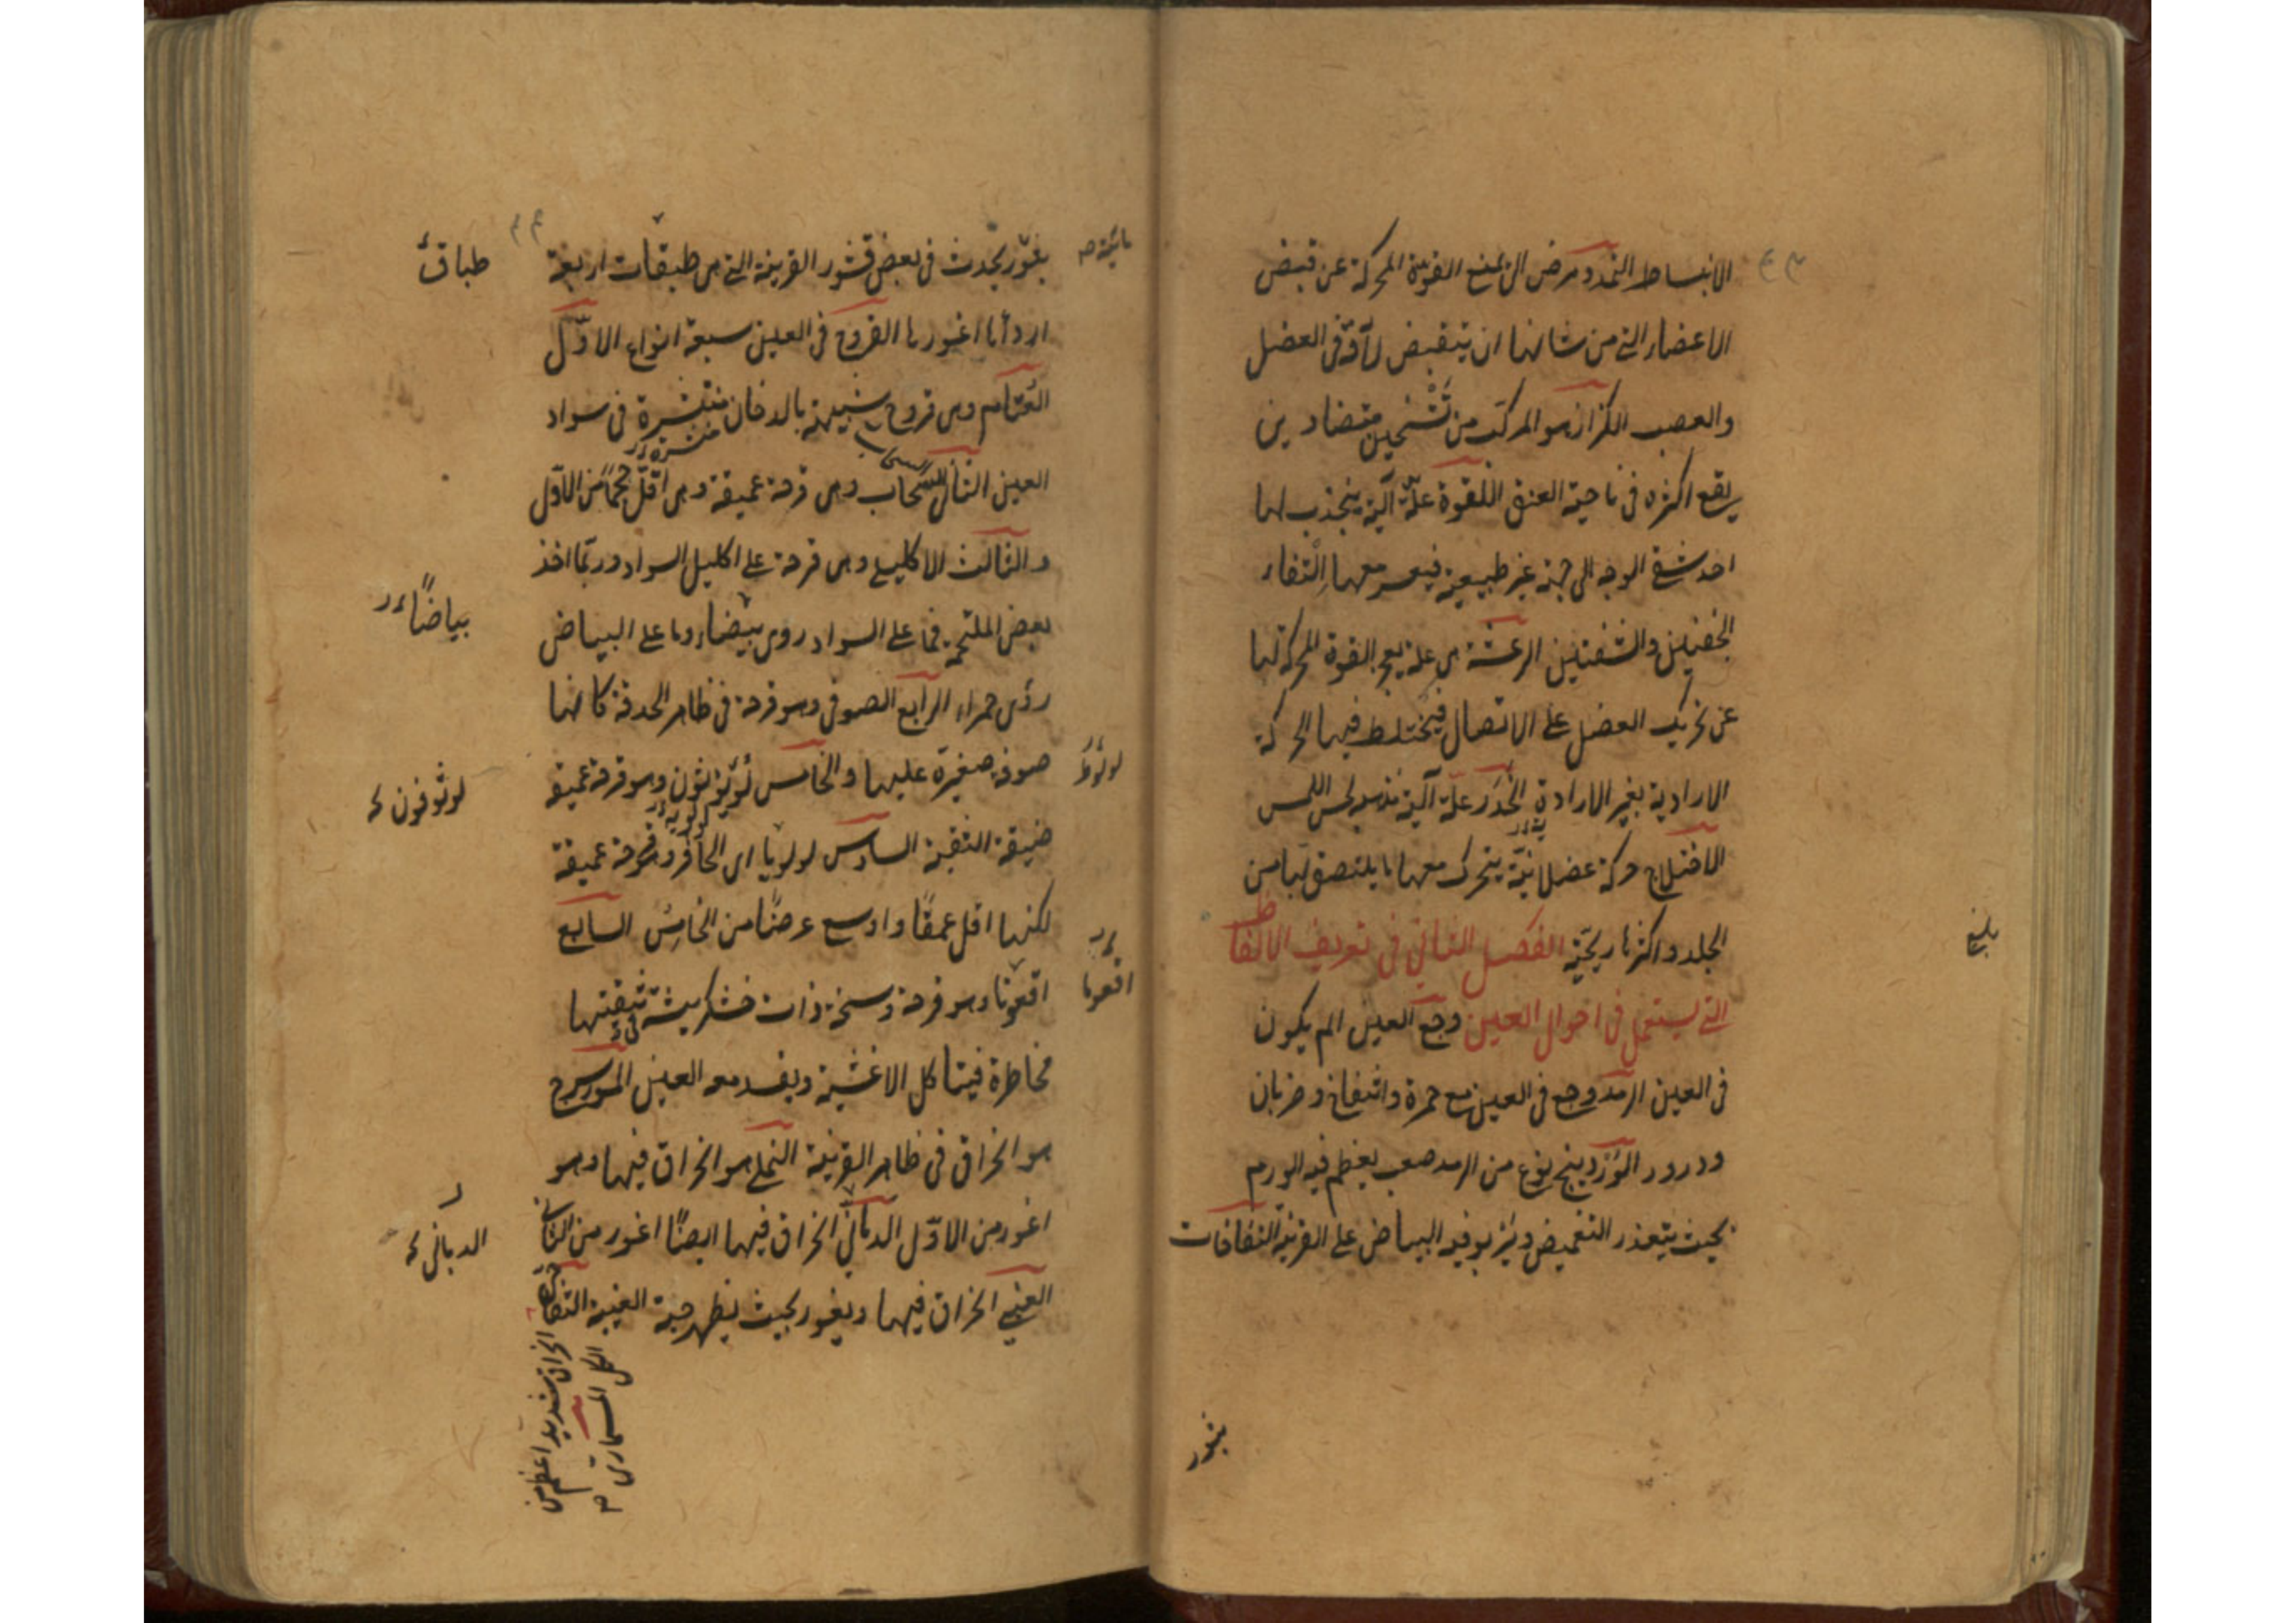 الانبساط التمدد مرض الى يمنع القوة المحركة عن قبض
الاعضاء التى من شانها ان يتقبض لآفة فى العضل
والعصب الكزاز هو المركب من تشنجين متضادين
يقع اكثره فى ناحية العنق اللقوة علة آلية ينجذب لها
احد شقى الوجه الى جهة غير طبيعية فيعسر معها التقاء
الجفنين والشفتين الرعشة هى علة يعجز القوة المحركة لها
عن تحريك العضل على الاتصال فيختلط فيها الحركة
الارادية بغير الارادة الخدر علة آلية لحس اللمس
الاختلاج حركة عضلانية يتحرك معها ما يلتصق بها من
الجلد واكثرها ريحية الفصل الثانى فى تعريف الالفاظ
التى يستعمل فى احوال العين وجع العين الم يكون
فى العين الرمد وجع فى العين مع حمرة وانتفاخ وضربان
ودرور الوردينج نوع من الرمد صعب يعظم فيه الورم
بحيث يتعذر التغميض ويربو فيه البياض على القرنية النفاخات
بليغ
بغور يحدث فى بعض قشور القرنية التى هى طبقات اربعة
طباق
اردأها اغورها القروح فى العين سبعة انواع الاول
القتام وهى قروح شبيهة بالدخان منتشرة فى سواد
العين الثانى السحاب وهى قرحة عميقة وهى اقل حجما من الاول
والثالث الاكليلى وهى قرحة على اكليل السواد وربما اخذ
بعض الملتحمة فما على السواد روى بيضاء وما على البياض
بياضا
رؤى حمراء الرابع الصوفى وهو قرحة فى ظاهر الحدقة كانها
صوفة صغيرة عليها والخامس لوثوثون وهو قرحة عميقة
لوثوفون
ضيقة الثقبة السادس لولويا اى الحافر وهو قرحة عميقة
لكنها اقل عمقا واوسع عرضا من الخامس السابع
اقعونا وهو قرحة وسخة ذات خشكريشة فى تنقيتها
اقعوما
مخاطرة فيتاكل الاغشية ويفسد معه العين المورسرج
هو انخراق فى ظاهر القرنية النملى هو انخراق فيها وهو
اغور من الاول الذبابى انخراق فيها ايضا اغور من الثانى
الدبانى
العنبى انخراق فيها ويغور بحيث يظهر حبة العنبية التفاحى
انخراق شديد اعظم من
الكل المسمارى